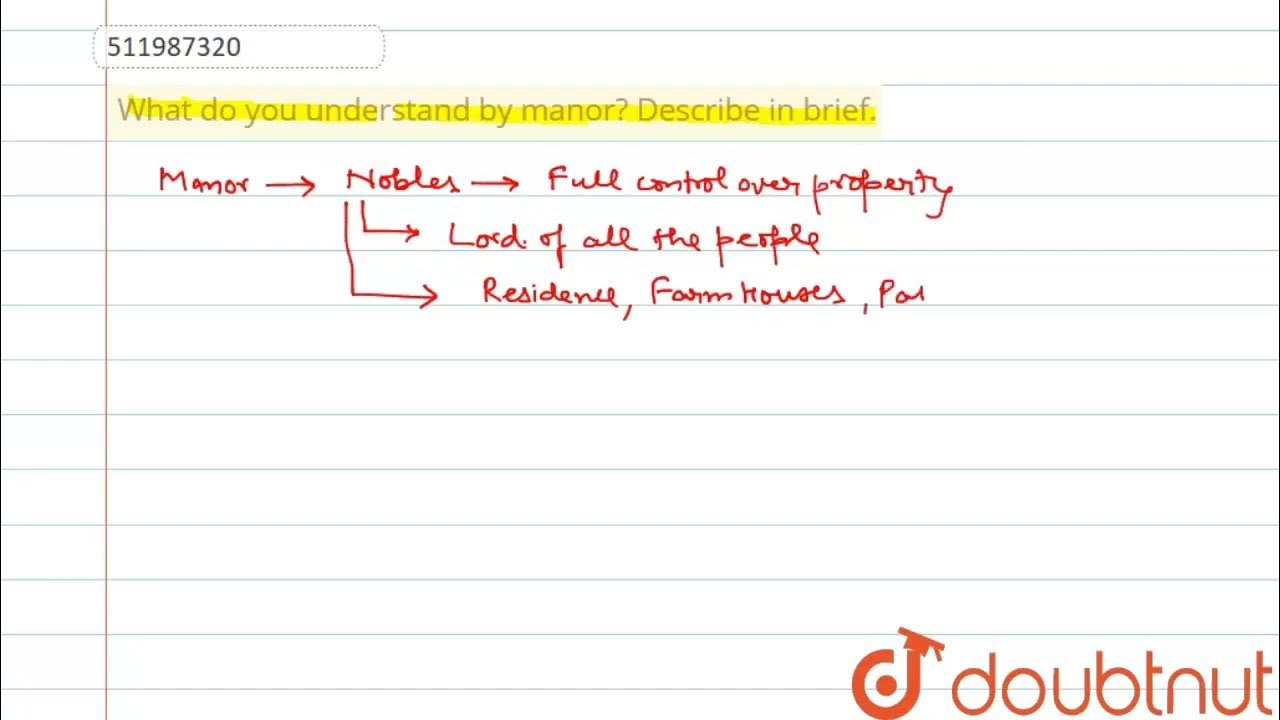 511987320
What do you understand by manor? Describe in brief.
Manor → Nobles → Full control over property
Lord of all the people
Residence, Farm Houses, Pas
doubtnut